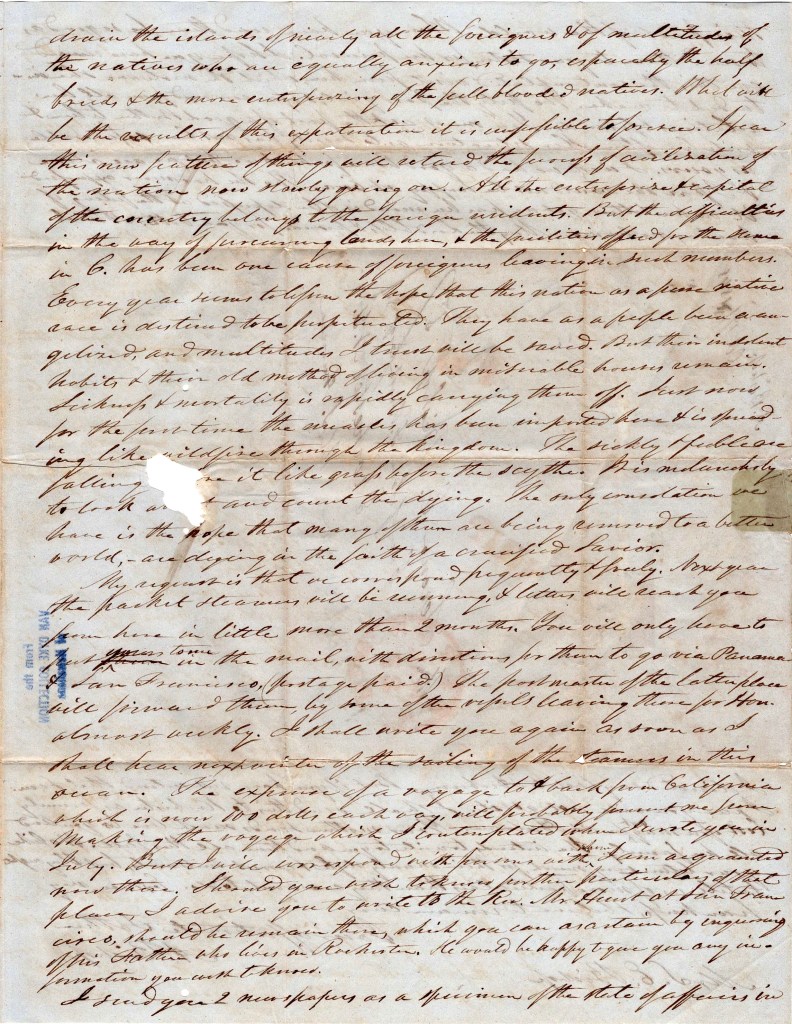 drain the islands of nearly all the foreigners & of multitudes of
the natives who are equally anxious to go, especially the half
breeds & the more enterprizing of the full blooded natives. What will
be the results of this expatriation it is impossible to foresee. I fear
this new feature of things will retard the process of civilization of
the nation now slowly going on. All the enterprize & capital
of the country belongs to the foreign residents. But the difficulties
in the way of procuring lands here, & the facilities offered for the same
in C. has been one cause of foreigners leaving in such numbers.
Every year seems to lessen the hope that this nation as a pure native
race is destined to be perpetuated. They have as a people been evan-
gelized, and multitudes I trust will be saved. But their indolent
habits & their old method of living in miserable houses remain.
Sickness & mortality is rapidly carrying them off. Just now
for the first time the measles has been imported here & is spread-
ing like wildfire through the Kingdom. The sickly & feeble are
falling it like grass before the scythe. It is melancholy
to look and count the dying. The only consolation we
have is the hope that many of them are being removed to a better
world, - are dying in the faith of a crucified Savior.
My request is that we correspond frequently & freely. Next year
the packet steamers will be running, & letters will reach you
from here in little more than 2 months. You will only have to
put yours to me in the mail, with directions for them to go via Panama
& San Francisco, (postage paid.) The postmaster of the latter place
will forward them by some of the vessels leaving there for Hon.
almost weekly. I shall write you again as soon as I
shall hear of the sailing of the steamers in this
ocean. The expense of a voyage to & back from California
which is now 100 dolls each way, will probably prevent me from
making the voyage which I contemplated when I wrote you in
July. But I will correspond with persons with whom I am acquainted
now there. Should you wish to know further particulars of that
place, I advise you to write to the Rev. Mr Hunt at San Fran
cisco, should he remain there, which you can ascertain by inquiring
of his Father who lives in Rochester. He would be happy to give you any in-
formation you wish to know.
I send you 2 newspapers as a specimen of the state of affairs in
From the
VAN DYKE COLLECTION